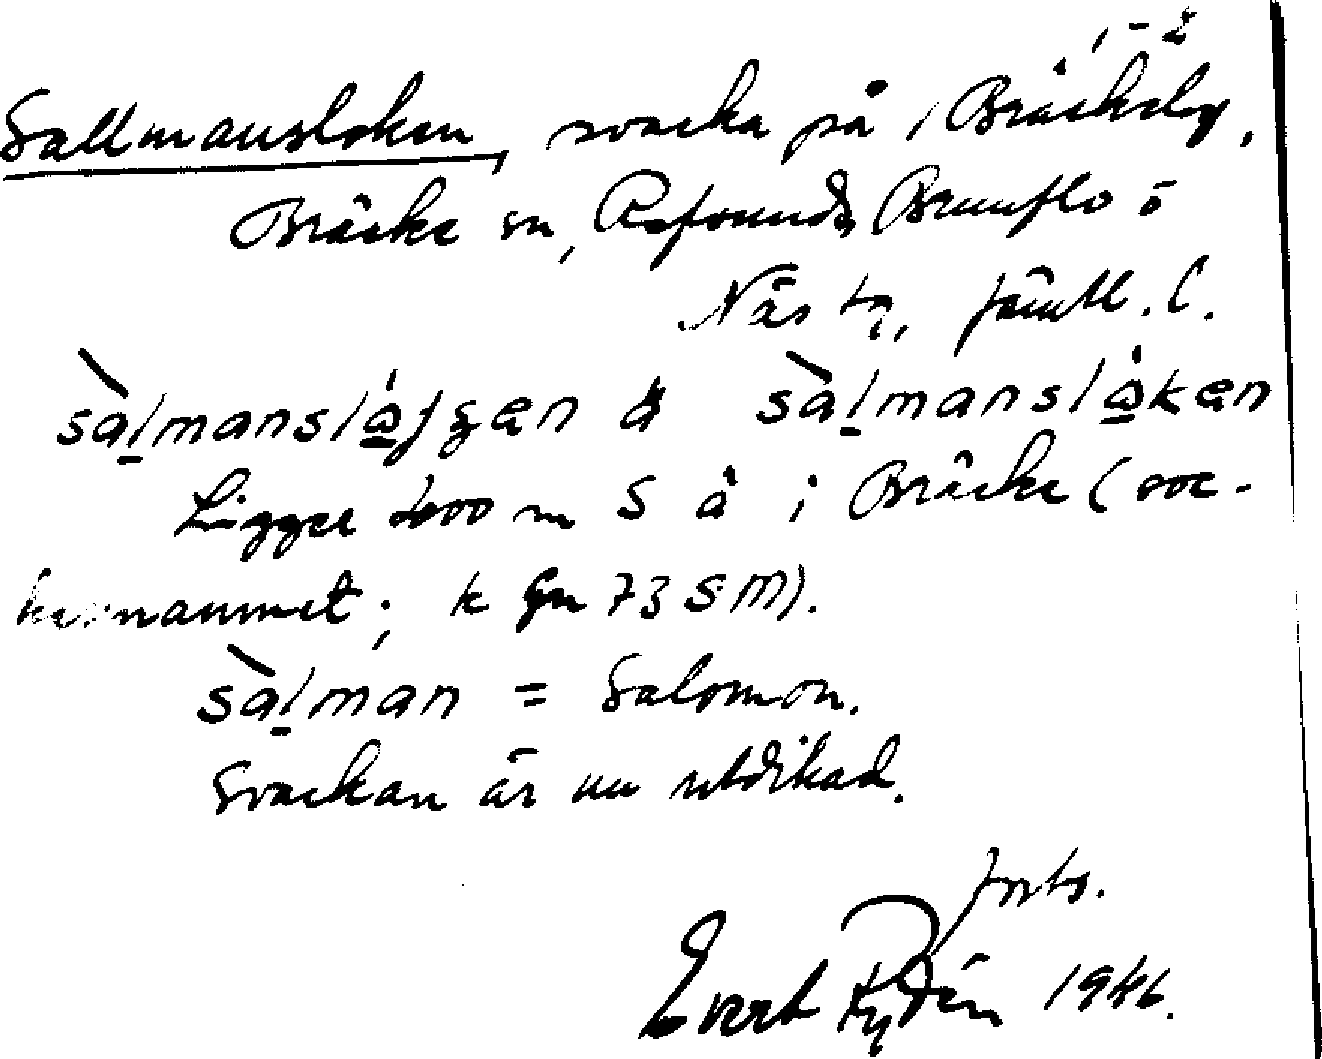 1-2
Sallmansloken, svacka på Bräckeby,
Bräcke sn, Refsunds, Brunflo o
Näs tg, Jämtl. l.
sàlmanslájgen å sàlmanslåken
Ligger 400 m S å i Bräcke (soc-
kennamnet; k Gn 73 SM).
sàlman = Salomon.
Svackan är nu utdikad.
forts.
Evert Rydén 1946.